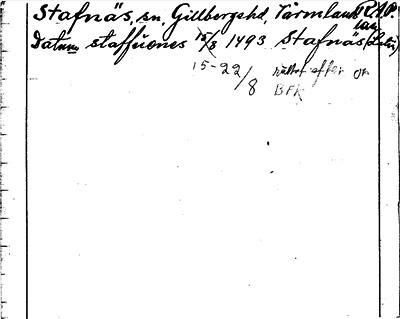 Stafnäs, sn, Gillbergshd, Värmland R.A.P.
Datum staffnönes 15/8 1493 Stafnäs (Latin)
15-22/8 rättat efter or
BFR